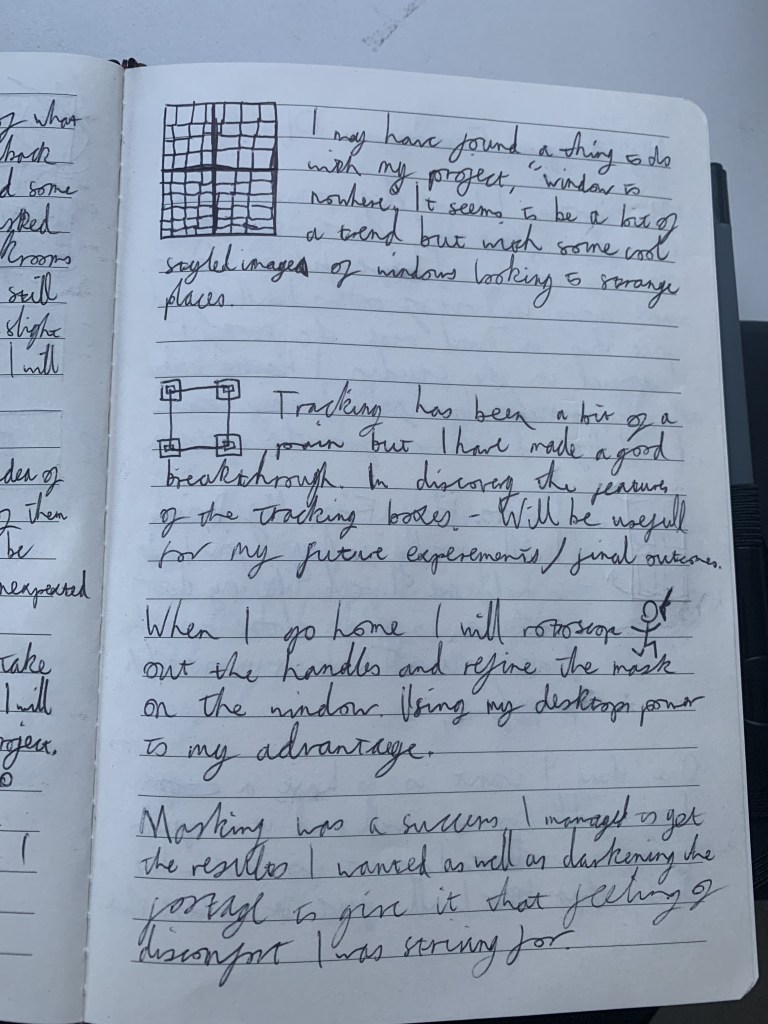 of what
back
d some
asked
krooms
still
slight
I will
dea of
of them
be
nexpected
take
I will
roject.
I
I may have found a thing to do
with my project, "window to
nowhere, It seems to be a bit of
a trend but with some cool
styled images of windows looking to strange
places.
Tracking has been a bit of a
pain but I have made a good
breakthrough. In discovery the features
of the tracking boxes. - Will be usefull
for my future experements / final outcomes.
When I go home I will rotoscope
out the handles and refine the mask
on the window. Using my desktops power
to my advantage.
Masking was a success, I managed to get
the results I wanted as well as darkening the
footage to give it that feeling of
discomfort I was striving for.